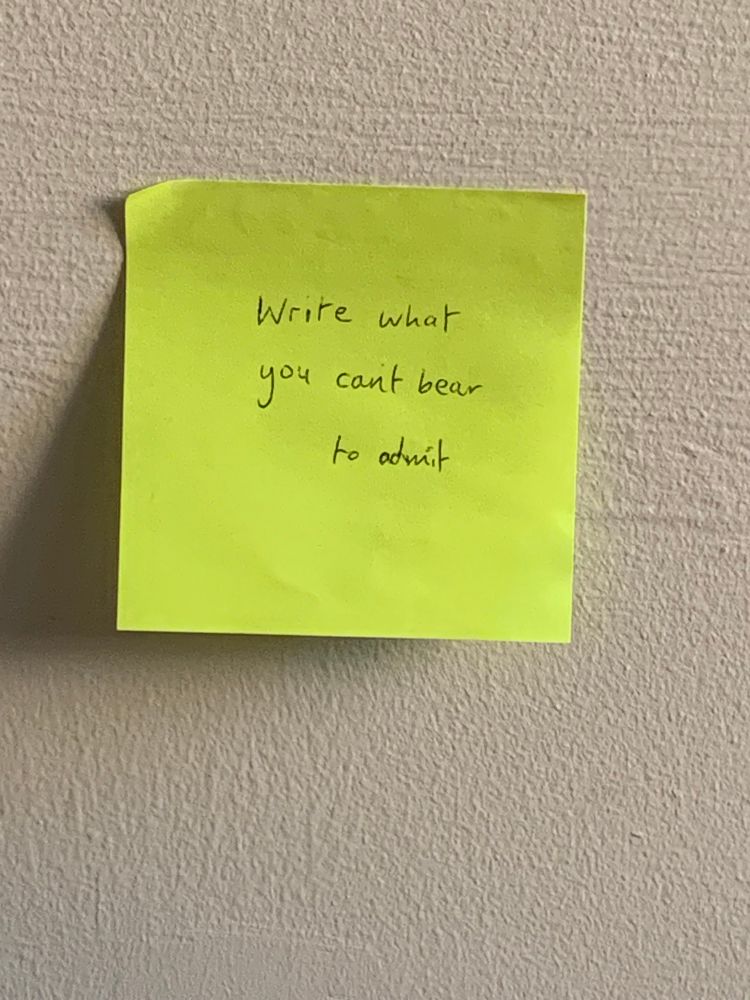 Write what
you can't bear
to admit